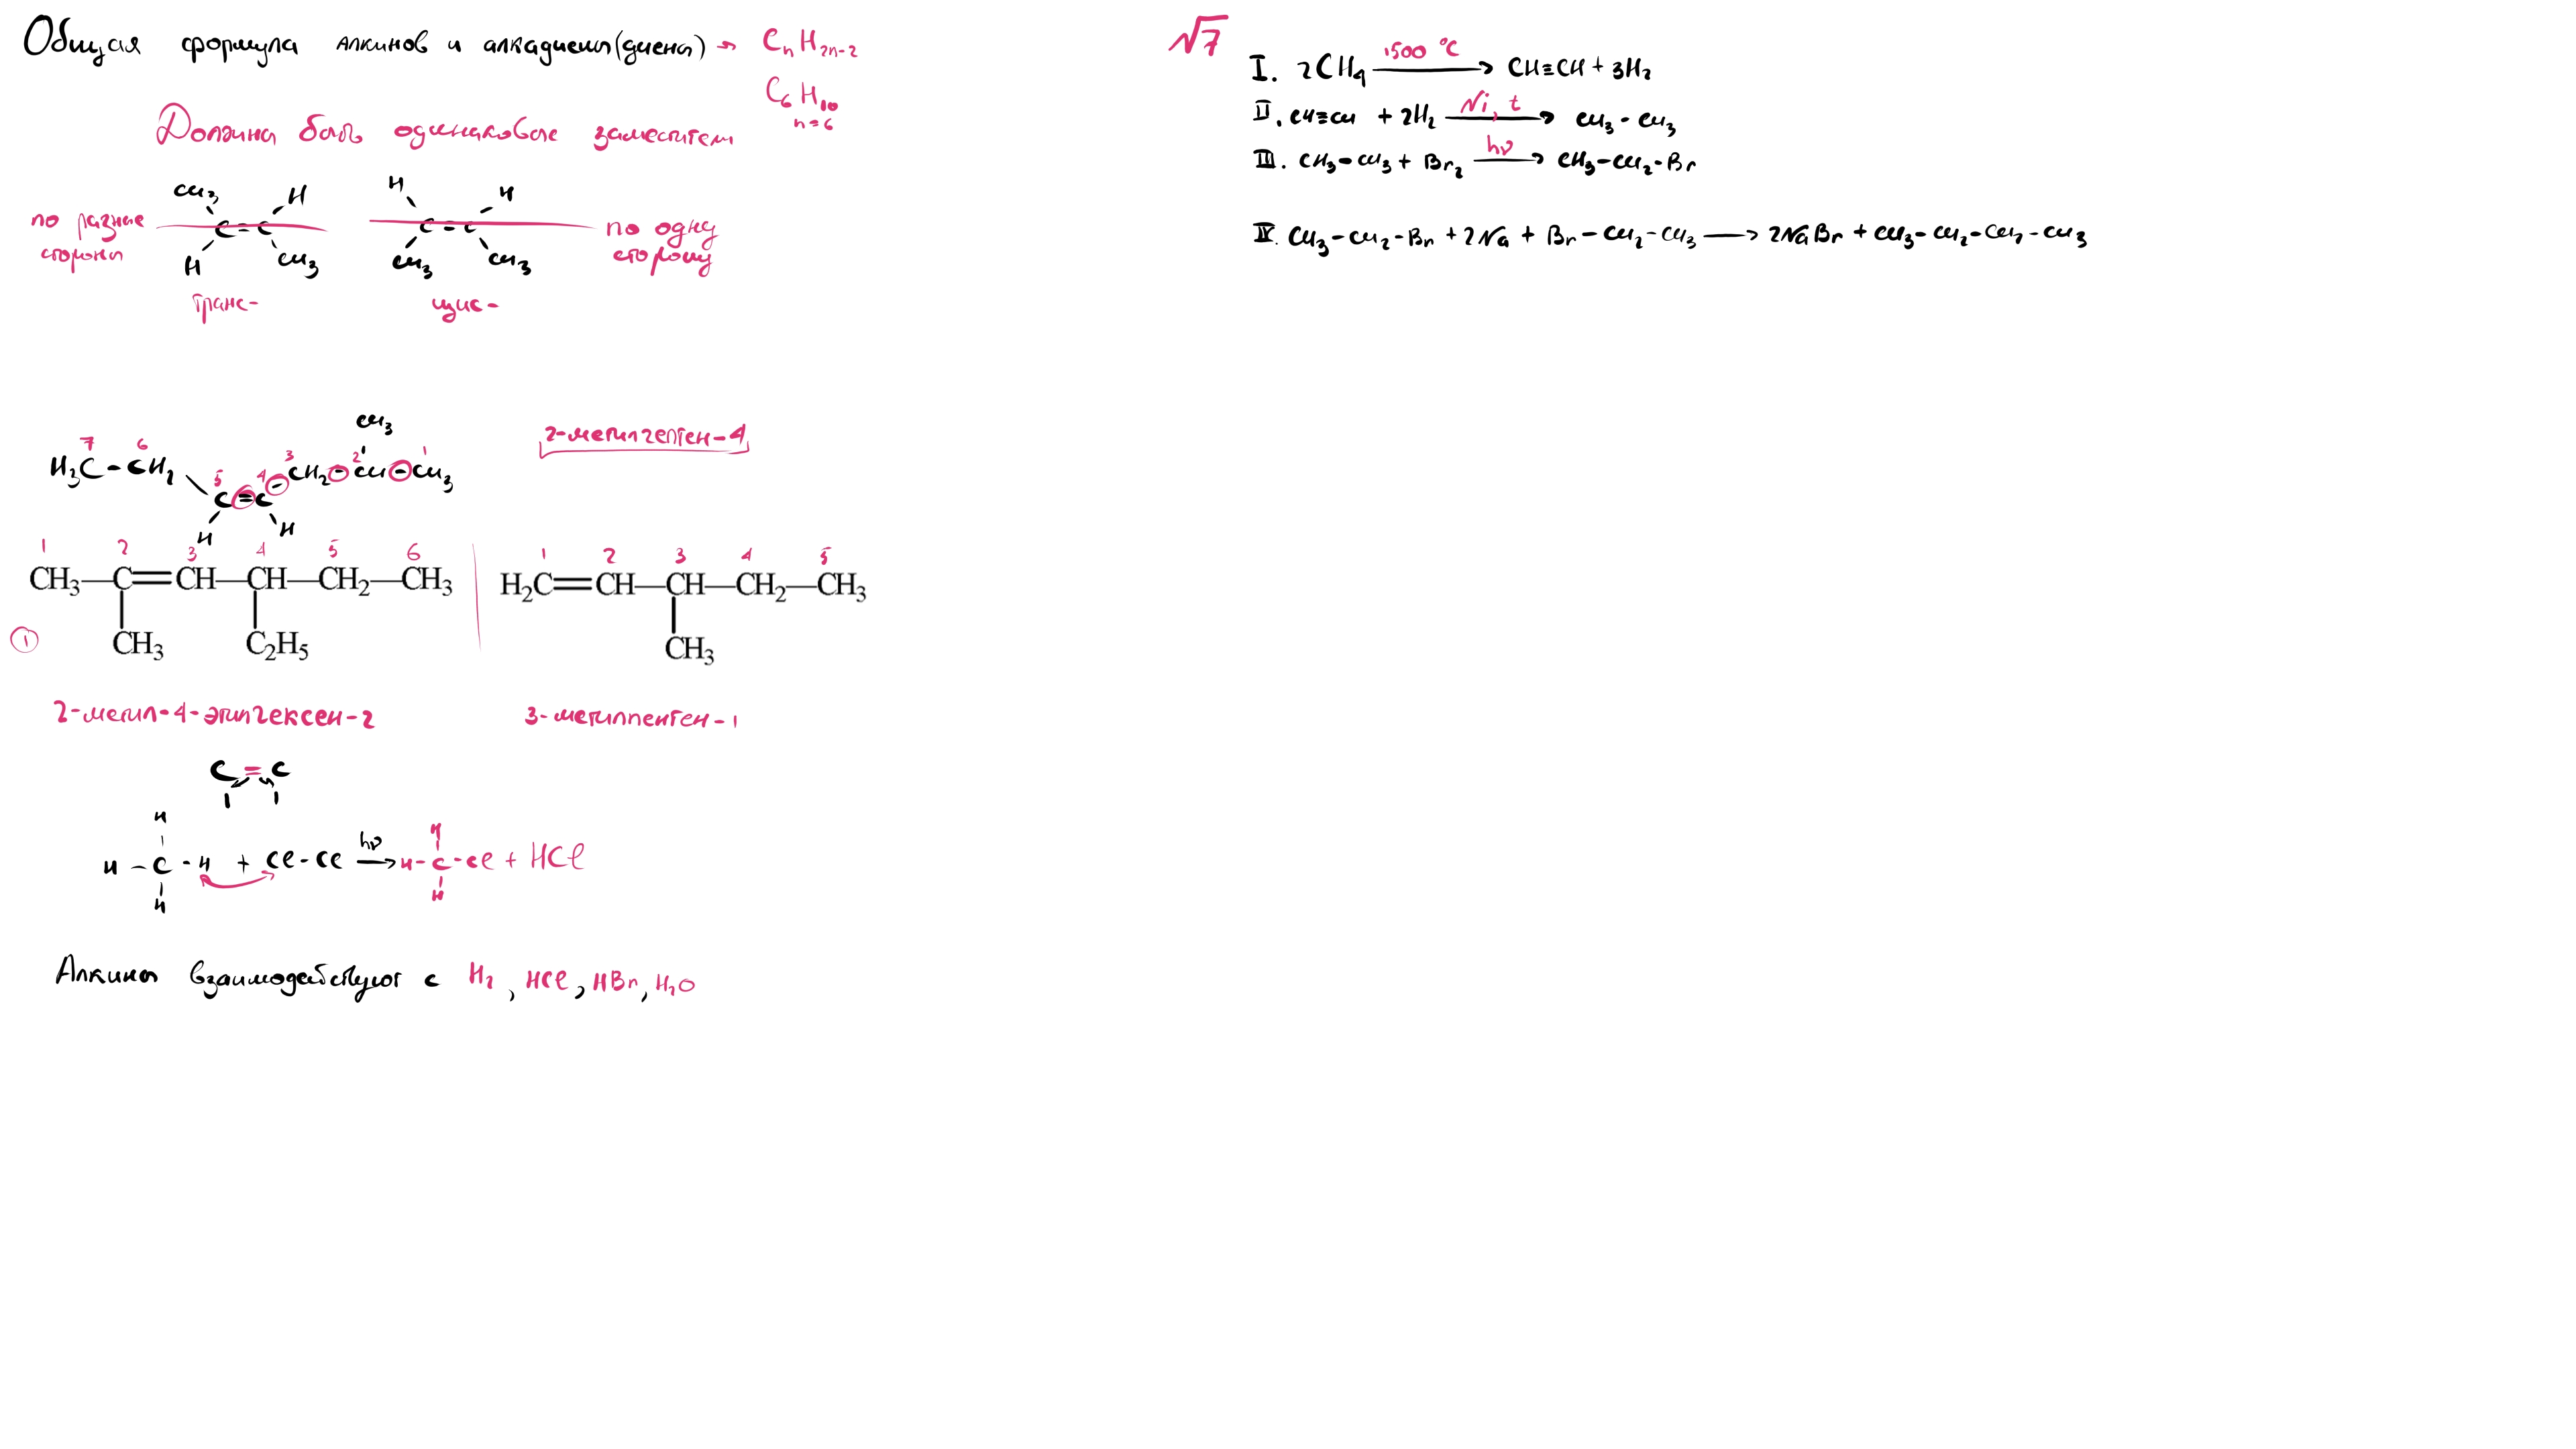 Общая формула алкинов и алкадиены(диены) → CnH2n-2
C6H10
n=6
Должны быть одинаковые заместители
CH3 H
C=C
H CH3
по разные стороны
транс-
H H
C=C
CH3 CH3
по одну сторону
цис-
CH3
7 6 5 4 3 2 1
H3C-CH2 C=C-CH2-CH-CH3
H H
2-метилгептен-4
1 2 3 4 5 6
CH3—C=CH—CH—CH2—CH3
CH3 C2H5
1
1 2 3 4 5
H2C=CH—CH—CH2—CH3
CH3
2-метил-4-этилгексен-2
3-метилпентен-1
C=C
H
H-C-H + Cl-Cl hν→ H-C-Cl + HCl
H
H
H
Алкины взаимодействуют с H2, HCl, HBr, H2O
√7
I. 2CH4 1500 °C→ CH≡CH + 3H2
II. CH≡CH + 2H2 Ni, t→ CH3-CH3
III. CH3-CH3 + Br2 hν→ CH3-CH2-Br
IV. CH3-CH2-Br + 2Na + Br-CH2-CH3 → 2NaBr + CH3-CH2-CH2-CH3